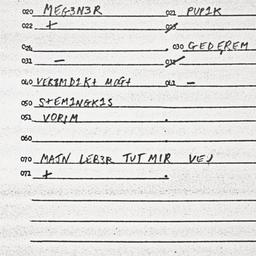 020 MEG3N3R 021 PUP1K
022 + 023
024 030 GEDEREM
031 – 032 ✓
040 VER8MD1K+ MOG+ 041 –
050 S+EM1NGK1S
051 VOR1M
060
070 MAJN LEB3R TUT MIR VEJ
072 +